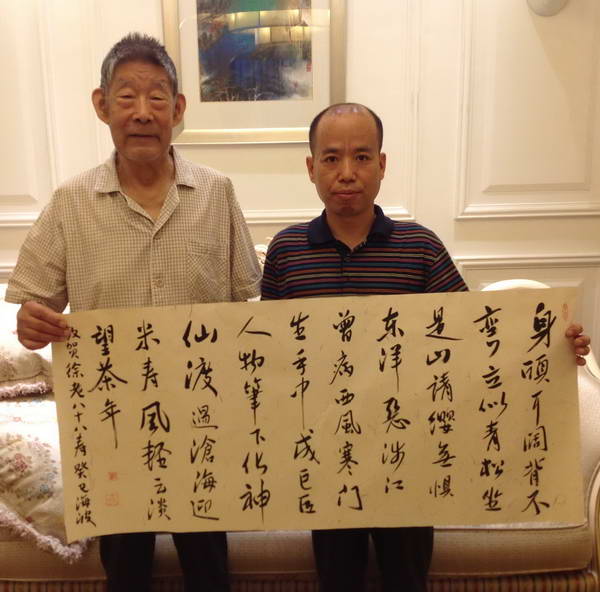 身頎耳阔背不
弯立似青松坐
是山請纓無惧
东洋恶涉江
曾病西風寒门
生手中成巨匠
人物筆下化神
仙渡過滄海迎
米寿風轻云淡
望茶年
敬贺徐老八十八寿癸巳海波